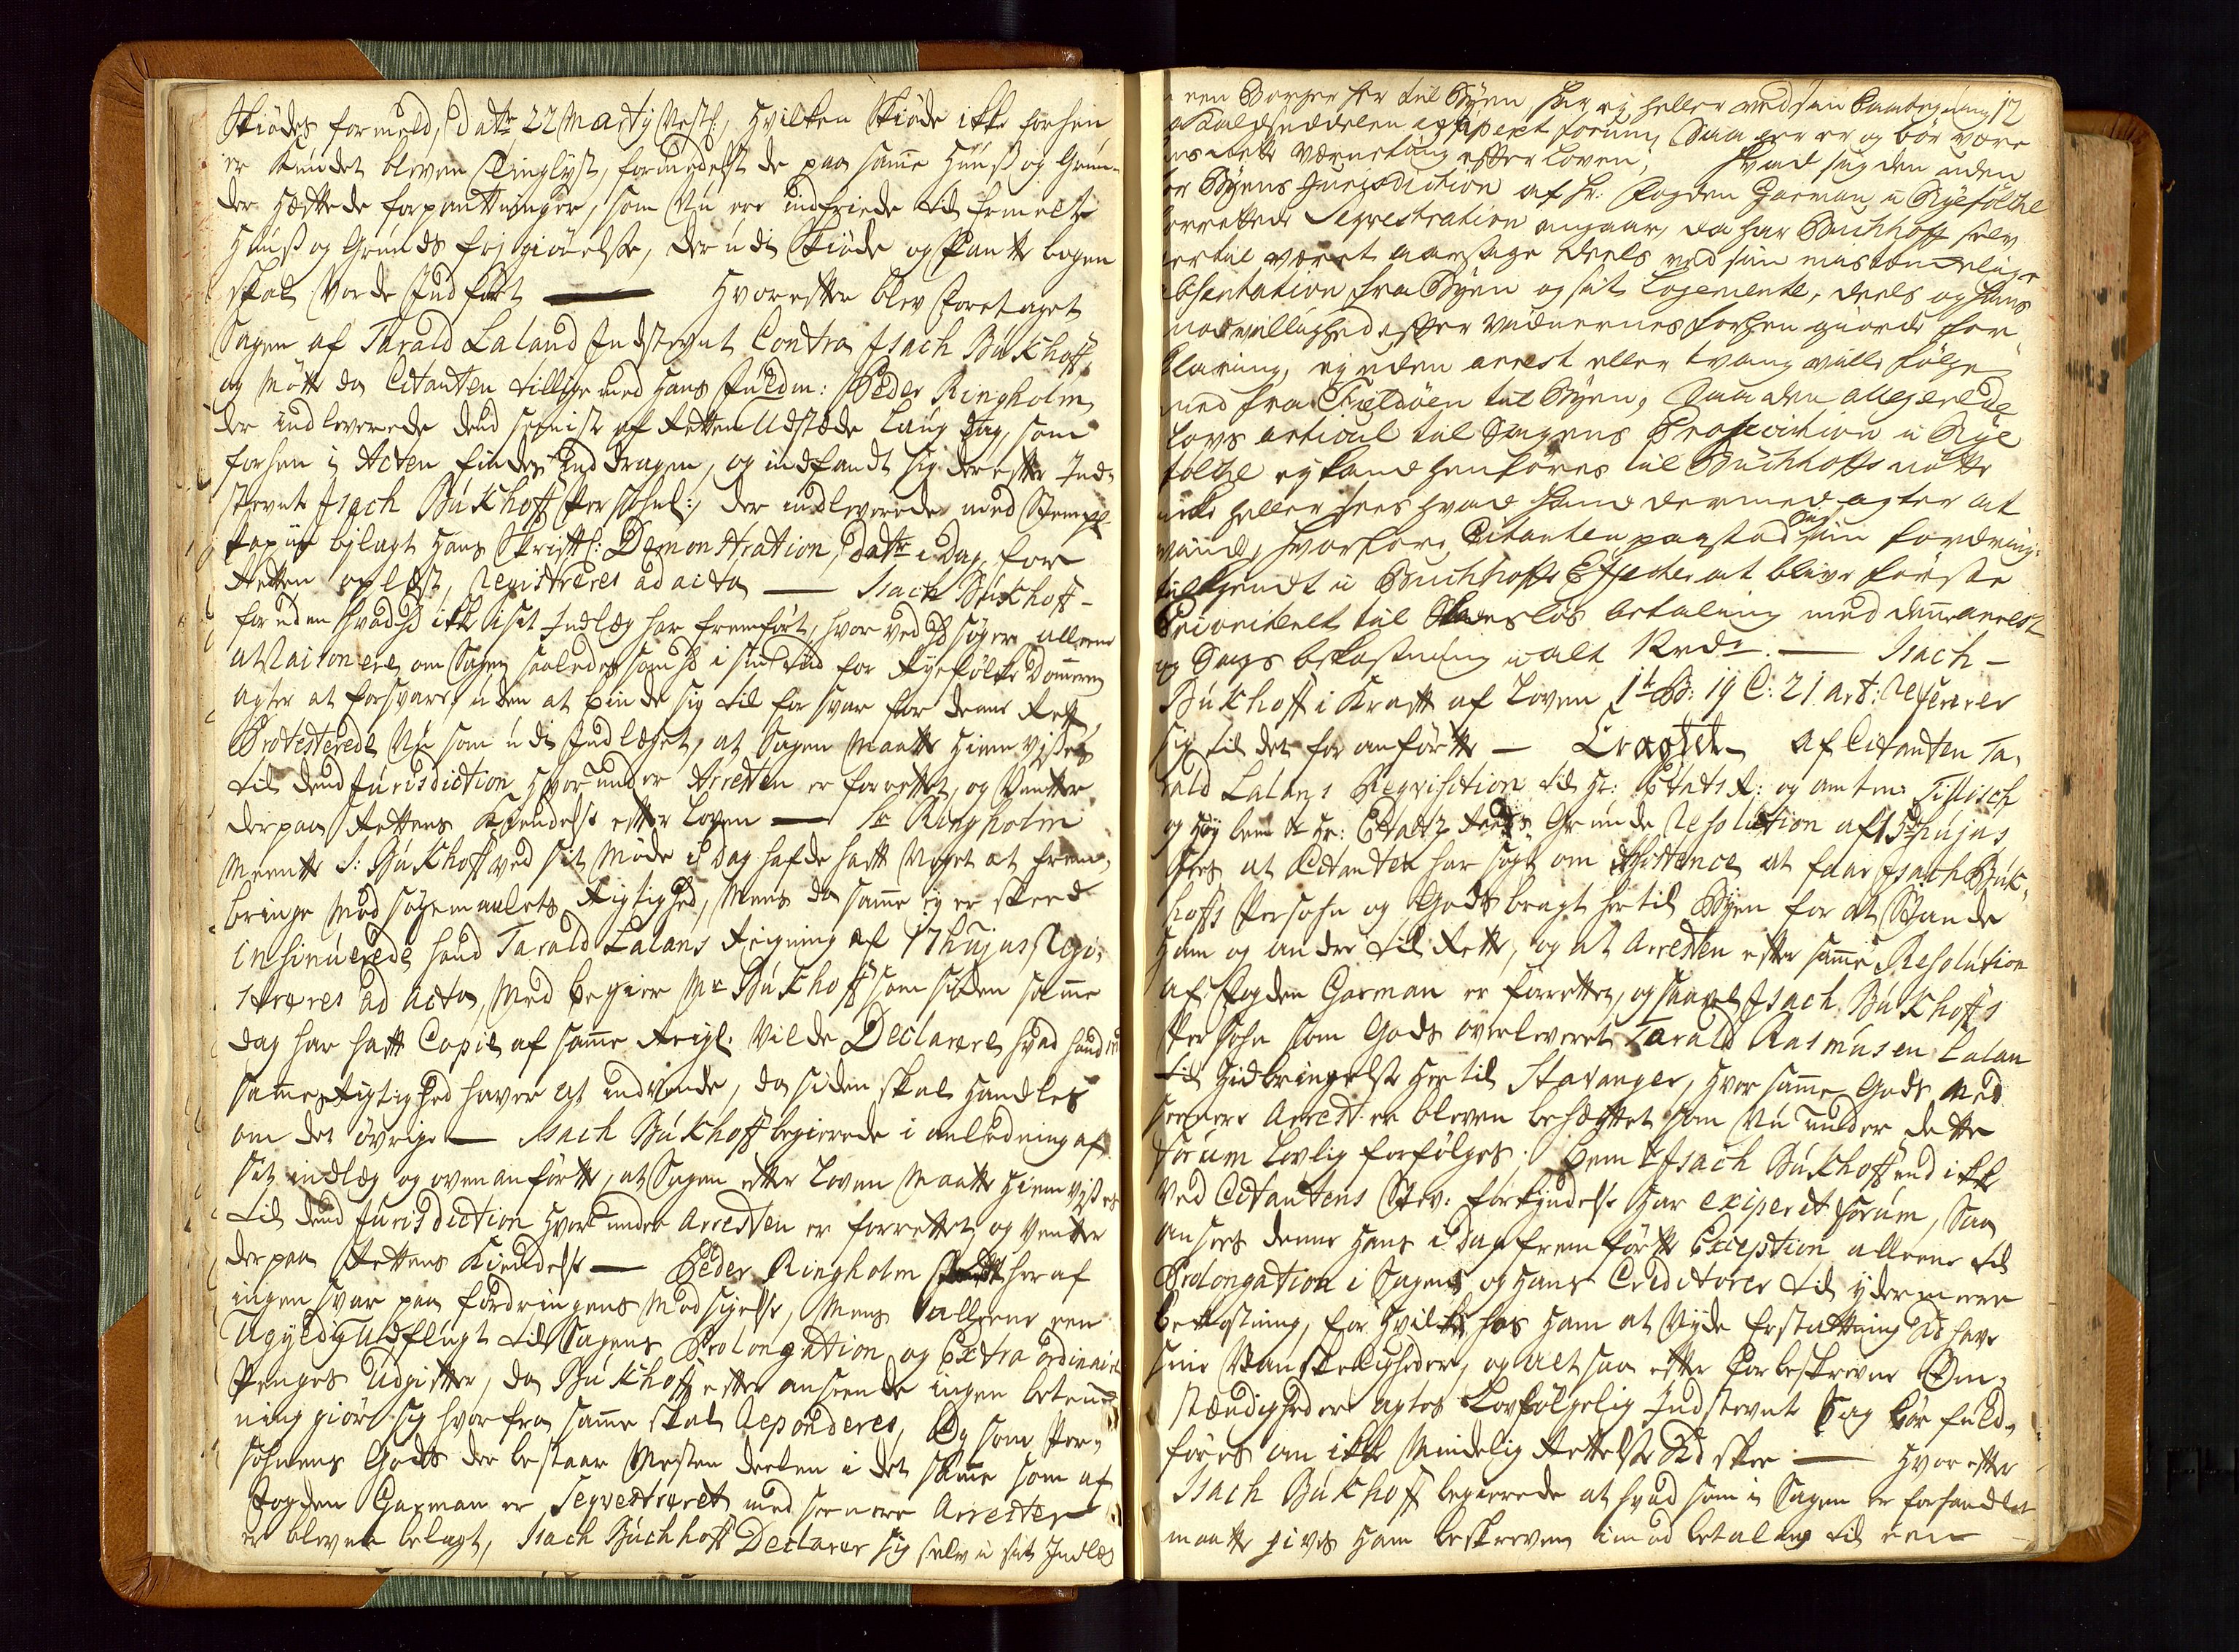 Skiødes formeld, dat: 22 Marty Nestl:, hvilken Skiøde ikke forhen
er kundet bleven Tinglyst, formedelst de paa samme Huus og Grun-
der heftede forpantninger, som Nu ere indfriede til ermelte
Huus og Grunds frj giørelse, der udi Skiøde og Pantte bogen
skal vorde Indført — Hvorefter blev foretaget
Sagen af Tarald Laland Indstevnt Contra Isach Bukhoff,
og møtte da Citanten tillige med Hans Fuldm: Peder Ringholm,
der indleverede dend seeniste af Retten Udstæde Laug Dag, som
forhen i Acten findes Inddragen, og indfandt sig derefter Ind-
stevnte Isach Bukhoff Persohnl:, der indleverede med Stempl
Papiir bjlagt Hans Skriftl: Demonstration, dat: i Dag, for
Retten oplæst, Registreres ad acta — Isach Bukhoff -
foruden hvad Hd ikke i sit Indlæg har fremført, hvorved Hd søger alleene
at raisonere om Sagen saaledes som Hd i sin tiid for Ryefølke Dommeren
agter at forsvare, uden at binde sig til forsvar for denne Rett,
Protesterede Nu som udi Indlæget, at Sagen maatte Hiemvises
til dend Jurisdiction hvorunder Arresten er forrettet, og ventter
derpaa Rettens Kiendelse efter Loven — Sr Ringholm
meente S: Bukhoff ved sit møde i Dag hafde hatt noget at frem-
bringe mod søgemaalets Rigtighed, mens da samme ej er skeed
insinuerede hand Tarald Lalans Reigning af 17 hujus Regi-
streres ad Acta, med begiær Mr Bukhoff som siden samme
dag har hatt Copie af samme Reigl. Vilde Declarere hvad hand mod
sammes Rigtighed haver at indvende, da siden skal handles
om det øvrige — Isach Bukhoff begierede i anledning af
sit indlæg og ovenanførte, at Sagen efter Loven Maatte Hiemvises
til dend Jurisdiction hvor under Arresten er forrettet, og ventter
derpaa Rettens Kiendelse — Peder Ringholm heraf
ingen svar paa fordringens modsigelse, mens alleene een
Ugyldig Udflugt til Sagens Prolongation og Extra ordinaire
Penges Udgifter, da Bukhoff efter anseende ingen beteink-
ning giør sig hvorfra samme skal Reponderes, Og som Per-
sohnens Gods der bestaar mesten deelen i det samme som af
Fogden Garman er Seqvestreret med seenere Arrester
er bleven belagt, Isach Buchhoff Declarer sig selv i sit Indlæg
een Borger her til Byen, har ej heller ved sin Paategning 12
paa Kaldsædelen exciperet forum, Saa her er og bør være
hans rette Værneting efter Loven; Hvad sig den uden
for Byens Jurisdiction af Hr: Fogden Garman i Ryefølche
forrettede Seqvestration angaar, da har Buchhoff selv
dertil været aarsage Deels ved sin
absentation fra Byen og sit Logemente, deels og hans
modvillighed efter vidnernes forhen giorde for-
klaring, ej uden arrest eller tvang ville følge
med fra Fieldøen til Byen, Saa den allegerede
Lovs articul til Sagens Prosecution i Rye
følche ej kand henføres til Buchhoffs nøtte
ikke heller sees hvad hand dermed agter at
vinde, hvorfore Citanten paastod Sig sin fordring:
tilkjendt i Buchhoffs Effecter at blive første
Prioriteret til Skadesløs betaling med denne arrest
og Sags bekostning i alt 12 rdr. — Isach -
Bukhoff i Kraft af Loven 1te B: 19 C: 21 art: Refererer
sig til det for anførte — Eragtet - af Citanten Ta-
rald Lalans Reqvisition til Hr: Etats R: og amtm: Tillisch
og Høybem:te Hr: Etats Raads Grunde Resolution af 15de hujus
sees at Citanten har søgt om Assistence at faae Isach Buk-
hoffs Persohn og Gods bragt her til Byen for at Stande
Ham og andre til Rette, og at Arresten efter samme Resolution
af Fogden Garman er forrettet, og saavel Isach Bukhoffs
Persohn som Gods overleveret Tarald Rasmusen Lalan
til Hidbringelse Her til Stavanger, hvor samme Gods med
seenere Arrest er bleven behæftet som Nu under dette
forum Lovlig forfølges; Bem:te Isach Bukhoff end ikke
ved Citantens Stev: forkyndelse har exiperet forum, Saa
ansees denne Hans i Dag fremførte Exception alleene til
Prolongation i Sagen, og Hans Creditorer til ydermeere
bekostning, for hvilke hos Ham at nyde Erstattning vil have
sine Vanskeligheder, og altsaa efter forbeskrevne Om-
stændigheder agtes Lovfølgelig Indstevnt Sag bør fuld-
føres om ikke Mindelig Rettelse kd skee — Hvorefter
Isach Bukhoff begierede at hvad som i Sagen er forhandlet
maatte gives Ham beskreven imod betaling til een